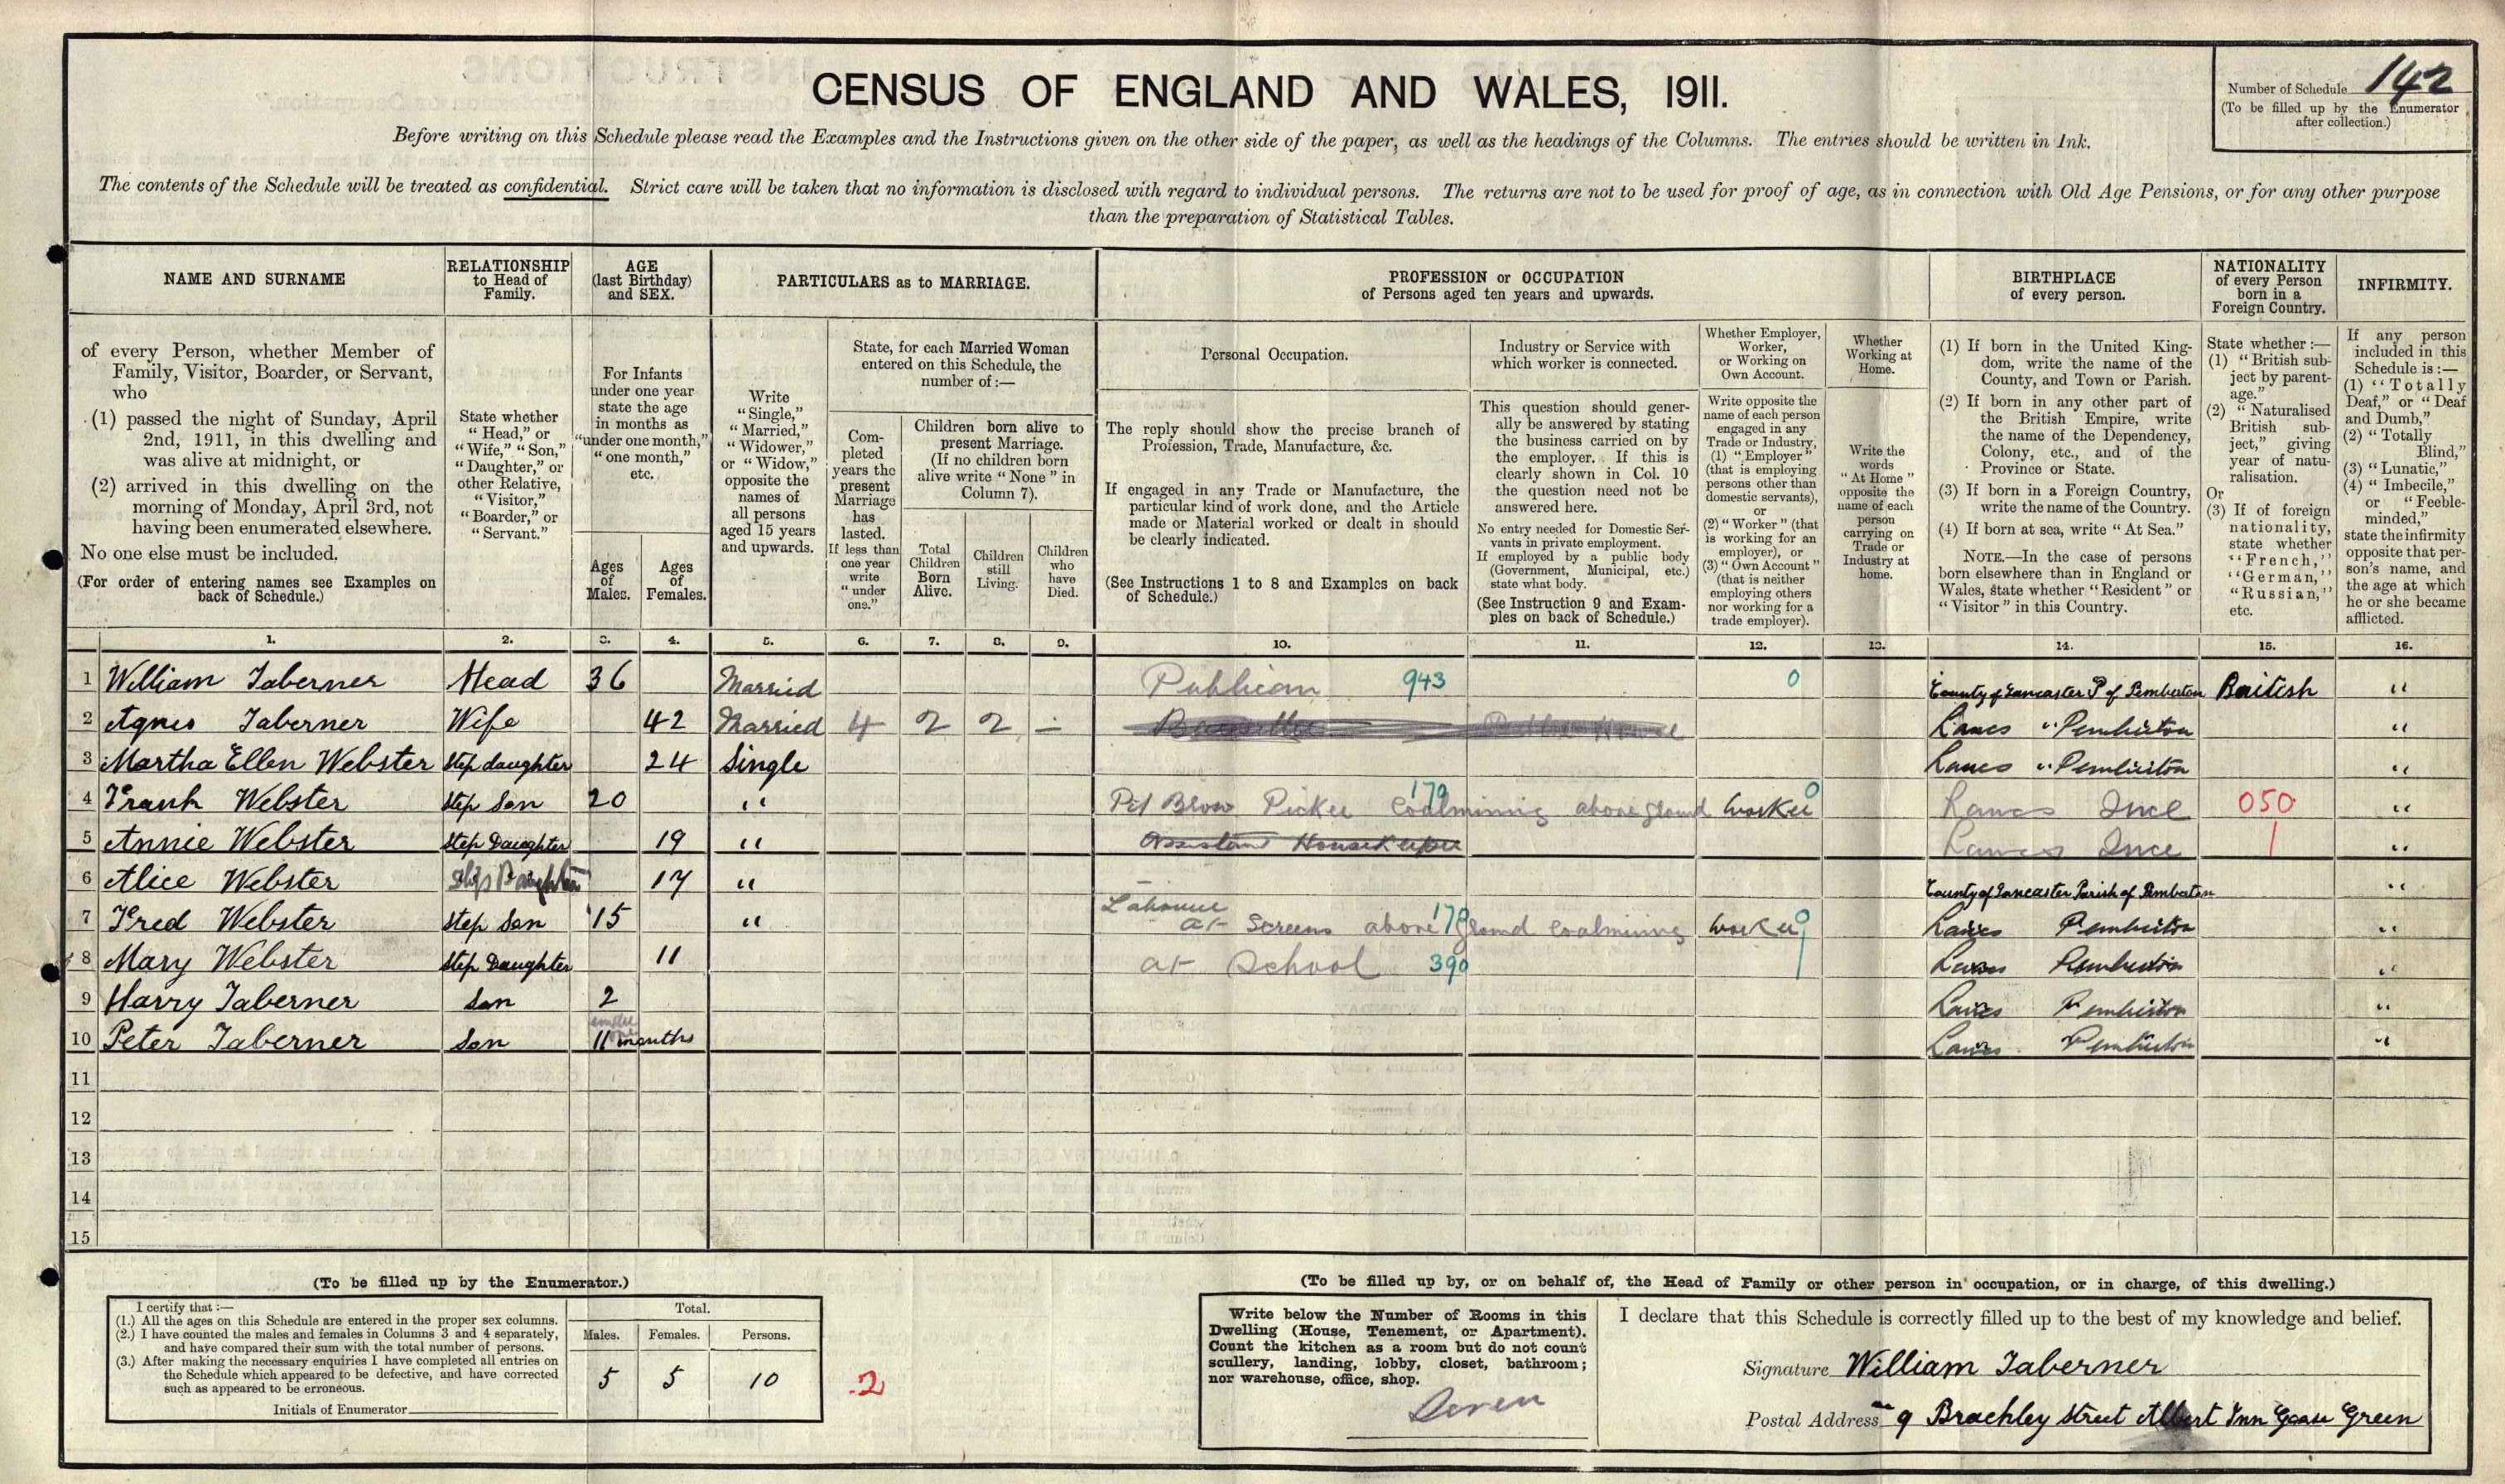 CENSUS OF ENGLAND AND WALES, 1911.
Number of Schedule 142
(To be filled up by the Enumerator
after collection.)
Before writing on this Schedule please read the Examples and the Instructions given on the other side of the paper, as well as the headings of the Columns. The entries should be written in Ink.
The contents of the Schedule will be treated as confidential. Strict care will be taken that no information is disclosed with regard to individual persons. The returns are not to be used for proof of age, as in connection with Old Age Pensions, or for any other purpose
than the preparation of Statistical Tables.
NAME AND SURNAME
of every Person, whether Member of
Family, Visitor, Boarder, or Servant,
who
(1) passed the night of Sunday, April
2nd, 1911, in this dwelling and
was alive at midnight, or
(2) arrived in this dwelling on the
morning of Monday, April 3rd, not
having been enumerated elsewhere.
No one else must be included.
(For order of entering names see Examples on
back of Schedule.)
RELATIONSHIP
to Head of
Family.
State whether
"Head," or
"Wife," "Son,"
"Daughter," or
other Relative,
"Visitor,"
"Boarder," or
"Servant."
AGE
(last Birthday)
and SEX.
For Infants
under one year
state the age
in months as
"under one month,"
"one month,"
etc.
Ages
of
Males.
Ages
of
Females.
PARTICULARS as to MARRIAGE.
Write
"Single,"
"Married,"
"Widower,"
or "Widow,"
opposite the
names of
all persons
aged 15 years
and upwards.
State, for each Married Woman
entered on this Schedule, the
number of :—
Com-
pleted
years the
present
Marriage
has
lasted.
If less than
one year
write
"under
one."
Children born alive to
present Marriage.
(If no children born
alive write "None" in
Column 7).
Total
Children
Born
Alive.
Children
still
Living.
Children
who
have
Died.
PROFESSION or OCCUPATION
of Persons aged ten years and upwards.
Personal Occupation.
The reply should show the precise branch of
Profession, Trade, Manufacture, &c.
If engaged in any Trade or Manufacture, the
particular kind of work done, and the Article
made or Material worked or dealt in should
be clearly indicated.
(See Instructions 1 to 8 and Examples on back
of Schedule.)
Industry or Service with
which worker is connected.
This question should gener-
ally be answered by stating
the business carried on by
the employer. If this is
clearly shown in Col. 10
the question need not be
answered here.
No entry needed for Domestic Ser-
vants in private employment.
If employed by a public body
(Government, Municipal, etc.)
state what body.
(See Instruction 9 and Exam-
ples on back of Schedule.)
Whether Employer,
Worker,
or Working on
Own Account.
Write opposite the
name of each person
engaged in any
Trade or Industry,
(1) "Employer"
(that is employing
persons other than
domestic servants),
or
(2) "Worker" (that
is working for an
employer), or
(3) "Own Account"
(that is neither
employing others
nor working for a
trade employer).
Whether
Working at
Home.
Write the
words
"At Home"
opposite the
name of each
person
carrying on
Trade or
Industry at
home.
BIRTHPLACE
of every person.
(1) If born in the United King-
dom, write the name of the
County, and Town or Parish.
(2) If born in any other part of
the British Empire, write
the name of the Dependency,
Colony, etc., and of the
Province or State.
(3) If born in a Foreign Country,
write the name of the Country.
(4) If born at sea, write "At Sea."
NOTE.—In the case of persons
born elsewhere than in England or
Wales, state whether "Resident" or
"Visitor" in this Country.
NATIONALITY
of every Person
born in a
Foreign Country.
State whether :—
(1) "British sub-
ject by parent-
age."
(2) "Naturalised
British sub-
ject," giving
year of natu-
ralisation.
Or
(3) If of foreign
nationality,
state whether
"French,"
"German,"
"Russian,"
etc.
INFIRMITY.
If any person
included in this
Schedule is :—
(1) "Totally
Deaf," or "Deaf
and Dumb,"
(2) "Totally
Blind,"
(3) "Lunatic,"
(4) "Imbecile,"
or "Feeble-
minded,"
state the infirmity
opposite that per-
son's name, and
the age at which
he or she became
afflicted.
1. 2. 3. 4. 5. 6. 7. 8. 9. 10. 11. 12. 13. 14. 15. 16.
1 William Taberner Head 36 Married Publican 943 0 County of Lancaster P of Pemberton British "
2 Agnes Taberner Wife 42 Married 4 2 2 — Lancs " Pemberton "
3 Martha Ellen Webster Step daughter 24 Single Lancs " Pemberton "
4 Frank Webster Step Son 20 " Pit Brow Picker 170 Coalmining above ground Worker 0 Lancs Ince 050 "
5 Annie Webster Step Daughter 19 " Assistant Housekeeper Lancs Ince "
6 Alice Webster Step Daughter 17 " County of Lancaster Parish of Pemberton "
7 Fred Webster Step Son 15 " Labourer at Screens above ground 170 Coalmining Worker 0 Lancs Pemberton "
8 Mary Webster Step Daughter 11 at School 390 Lancs Pemberton "
9 Harry Taberner Son 2 Lancs Pemberton "
10 Peter Taberner Son under one 11 months Lancs Pemberton "
11
12
13
14
15
(To be filled up by the Enumerator.)
I certify that :—
(1.) All the ages on this Schedule are entered in the proper sex columns.
(2.) I have counted the males and females in Columns 3 and 4 separately,
and have compared their sum with the total number of persons.
(3.) After making the necessary enquiries I have completed all entries on
the Schedule which appeared to be defective, and have corrected
such as appeared to be erroneous.
Initials of Enumerator
Total.
Males. Females. Persons.
5 5 10
2
(To be filled up by, or on behalf of, the Head of Family or other person in occupation, or in charge, of this dwelling.)
Write below the Number of Rooms in this
Dwelling (House, Tenement, or Apartment).
Count the kitchen as a room but do not count
scullery, landing, lobby, closet, bathroom;
nor warehouse, office, shop.
Seven
I declare that this Schedule is correctly filled up to the best of my knowledge and belief.
Signature William Taberner
Postal Address 9 Brackley Street Albert Inn Goose Green